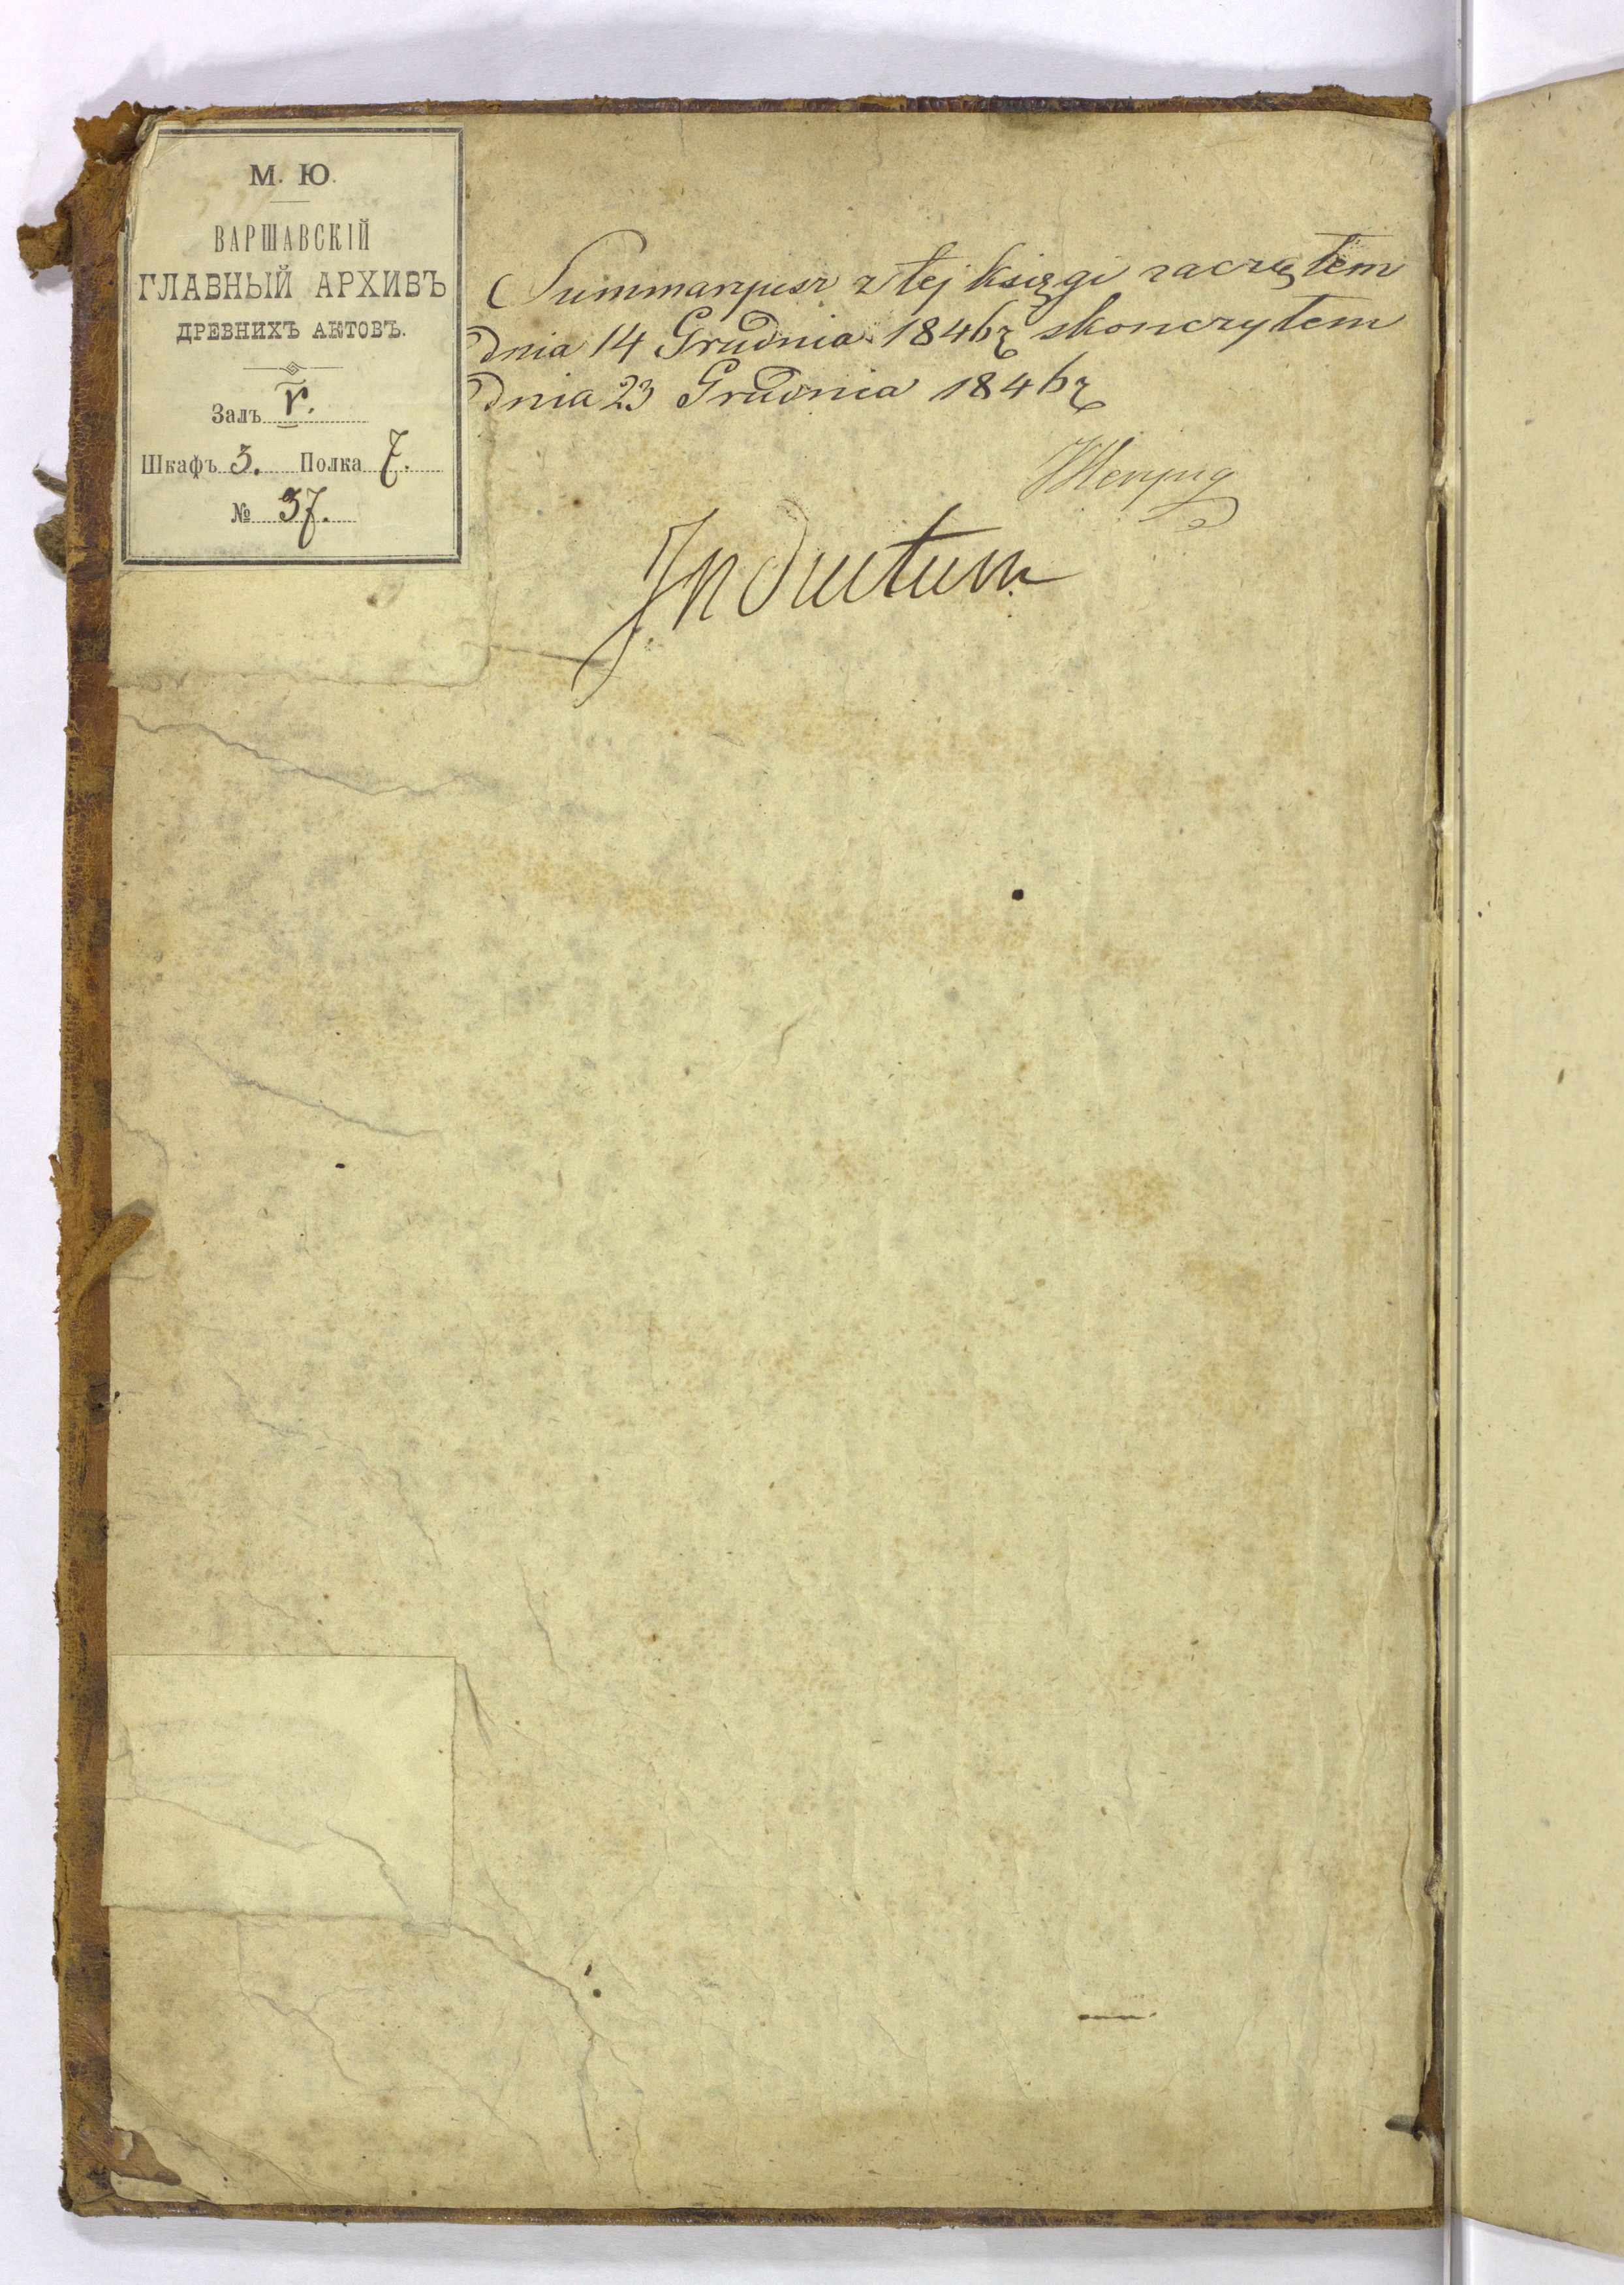 М. Ю.
ВАРШАВСКІЙ
ГЛАВНЫЙ АРХИВЪ
ДРЕВНИХЪ АКТОВЪ.
Залъ V.
Шкафъ 3. Полка 7.
№ 37.
Summaryusz z tej księgi zaczętem
dnia 14 Grudnia 1846 r skonczyłem
dnia 23 Grudnia 1846 r
Inductum